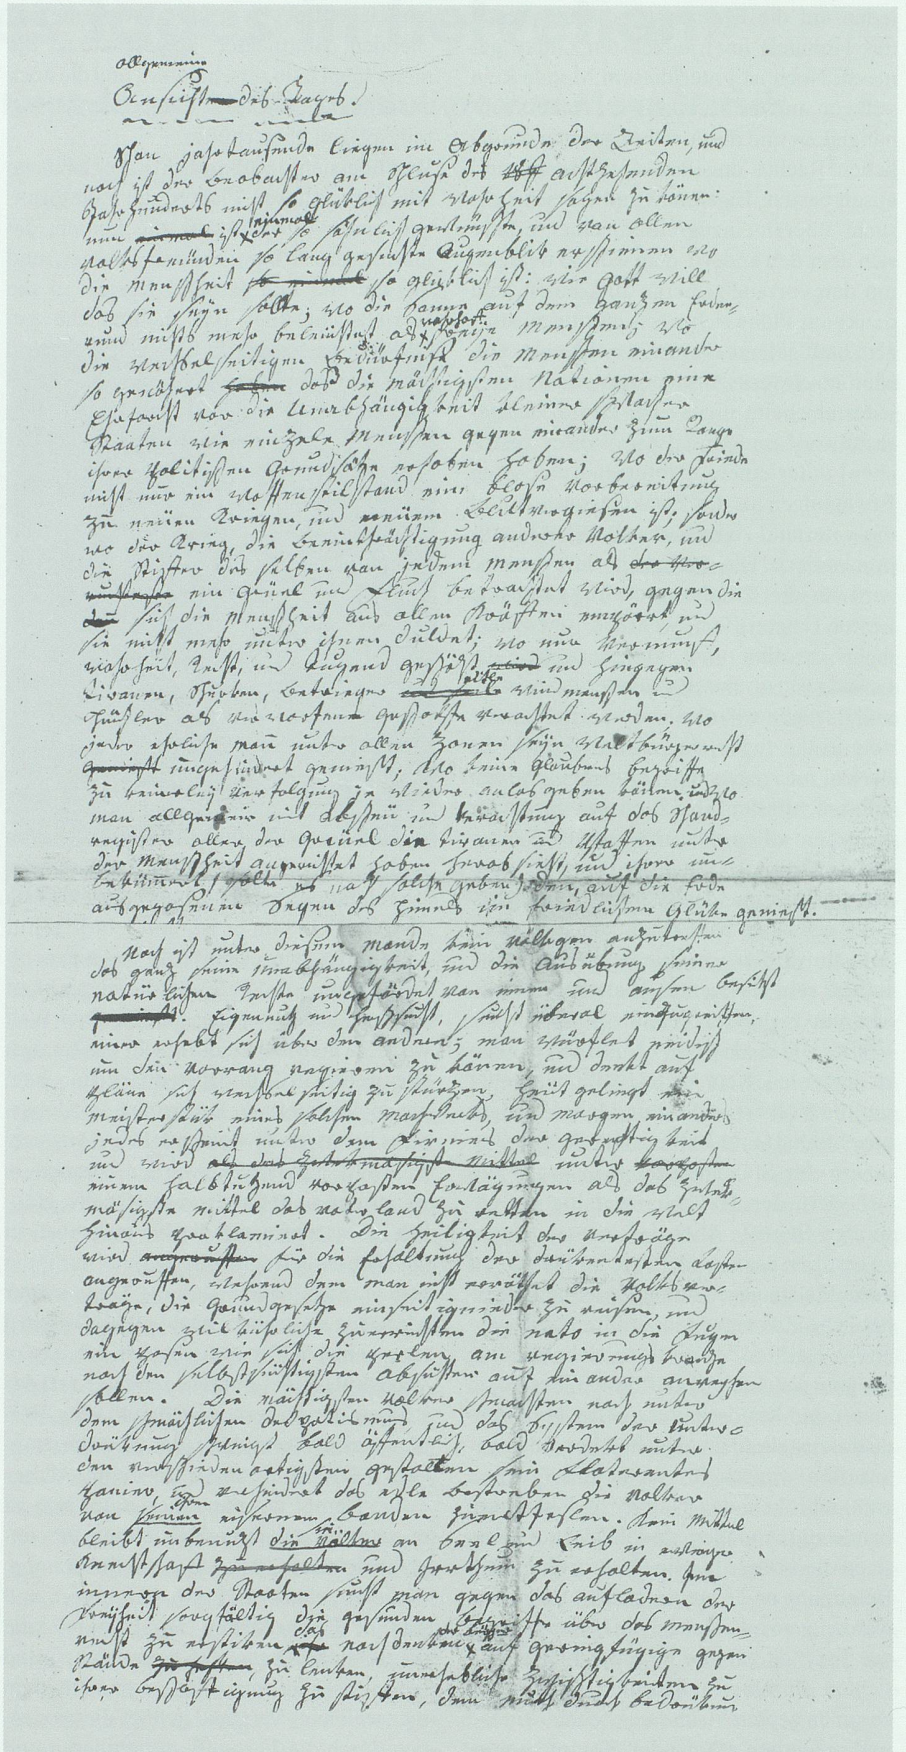 allgemeine
Ansichten des Tages.
Schon jahrtausende liegen im Abgrunde der Zeiten, und
noch ist der Beobachter am Schluse des achtzehenden
Jahrhunderts nicht so glüklich mit Wahrheit sagen zu könen:
nun einmal ist einmal der so sehnlich gewünschte, und von allen
Volksfreünden so lang gesuchte Augenblik erschienen wo
die Menschheit so einmal so glüklich ist: wie Gott will
das sie seyn solte; wo die Sonne auf dem ganzen Erden-
rund nichts mehr beleüchtet als wahrhaft freije Menschen; wo
die wechselseitigen Bedürfniße die Menschen einander
so genähert haben das die mächtigsten Nationen eine
Ehrfurcht vor die Unabhängigkeit kleiner schwacher
Staaten wie einzele Menschen gegen einander zum Range
ihrer politischen Grundsäze erhoben haben; wo der Friede
nicht nur ein Waffenstilstand eine blose Vorbereitung
zu neüen Kriegen, und neüem Blutvergiesen ist; sonder
wo der Krieg, die Beeinträchtigung anderer Völker, und
die Stifter des selben von jedem Menschen als
ein Greüel und Fluch betrachtet wird, gegen die
sich die Menschheit aus allen Kräften empöret, und
sie nicht mehr unter ihnen duldet; wo nur Vernunft,
Wahrheit, Recht, und Tugend geschäzt wird und hingegen
Tiranen, Schurken, Betrieger Windmenschen und
Heüchler als verworfene Geschöpfe verachtet werden. Wo
jeder ehrliche Man unter allen Zonen seyn Weltbürgerrecht
genießt ungehindert genießt; wo keine Glaubens begriffe
zu keinerley Verfolgung je wieder anlas geben könen, und wo
man allgemein mit Abscheü und Verachtung auf das Schand-
register aller der Greüel die tiranen und Pfaffen unter
der Menschheit angerichtet haben herabsieht, und ihrer un-
bekümert, solte es noch solche geben, den, auf die Erde
ausgegosenen Segen des Himels im friedlichen Glüke genießt.
Noch ist unter diesem Monde kein Völkgen anzutreffen
das ganz seine Unabhängigkeit, und die Ausübung seiner
natürlichen Rechte ungefärdet von inen und ausen besitzt
Eigennutz und Herschsucht, sucht überal einzugreiffen,
einer erhebt sich über den andern; man würflet neidisch
um den Vorrang regieren zu könen, und denkt auf
Pläne sich wechselseitig zu stürtzen, heüt gelingt ein
Meisterstük eines solchen Machwerks, und morgen ein anders
jedes erscheint unter dem Firnies der Gerechtigkeit
und wird als das zwekmäsigste Mittel unter
einem halbdutzend Erwägungen als das zwek-
mäsigste Mittel das Vaterland zu retten in die Welt
hinaus proklamiert. Die Heiligkeit der Verträge
wird angeruffen für die Erhaltung der drükendsten Lasten
angeruffen, während dem man nicht erröthet die Volksver-
träge, die Grundgesetze einseitig nieder zu reisen, und
dagegen wilkührliche zu errichten die nato in die Fugen
ein pasen wie sich die am regierungs
nach den selbstsüchtigsten Absichten auf ein ander anreihen
sollen. Die mächtigsten Völker schmachten noch unter
dem schmählichen despotismus, und das System der Unter-
drükung schwingt bald öffentlich, bald verdekt unter
den verschiedenartigsten Gestalten sein
Panier, und verhindert das edle Bestreben die Völker
von ihren eisernen Banden zu entfeslen. Kein Mittel
bleibt unbenutzt die Völker an Seel und Leib in ewiger
Knechtschaft zu erhalten und Irrthum zu erhalten. Im
innern der Staaten sucht man gegen das auflodern der
Freyheit sorgfältig die gesunden begriffe über das Menschen-
recht zu erstiken das nachdenken auf geringfügige gegen
Stände zu lenken, unerhebliche Zwistigkeiten zu
ihrer beschäftigung zu stiften, den Muth durch bedrükung